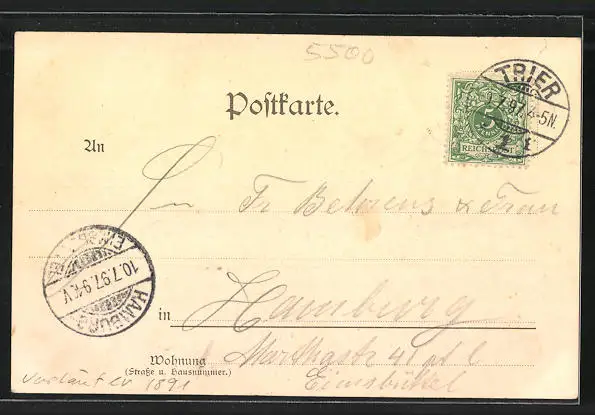 5500
TRIER
7.97.4-5N.
1 r
5
REICHSPOST
Postkarte.
An
Fr Behrens & Frau
EIMSBÜTTEL
10.7.97.9-V
HAMBURG
in Hamburg
Marthastr 41 pt l
Wohnung
(Straße u. Hausnummer.)
Eimsbüttel
1891